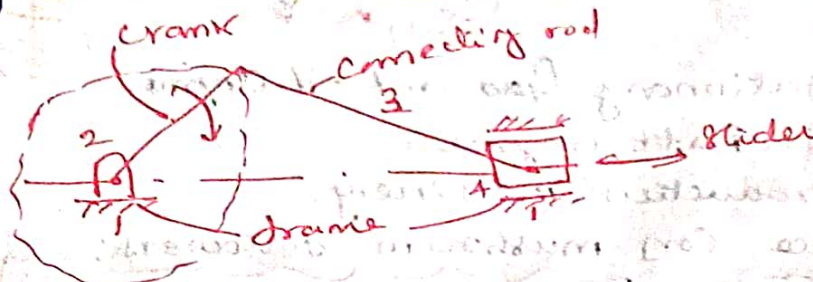 crank
connecting rod
3
2
slider
4
1
1
frame